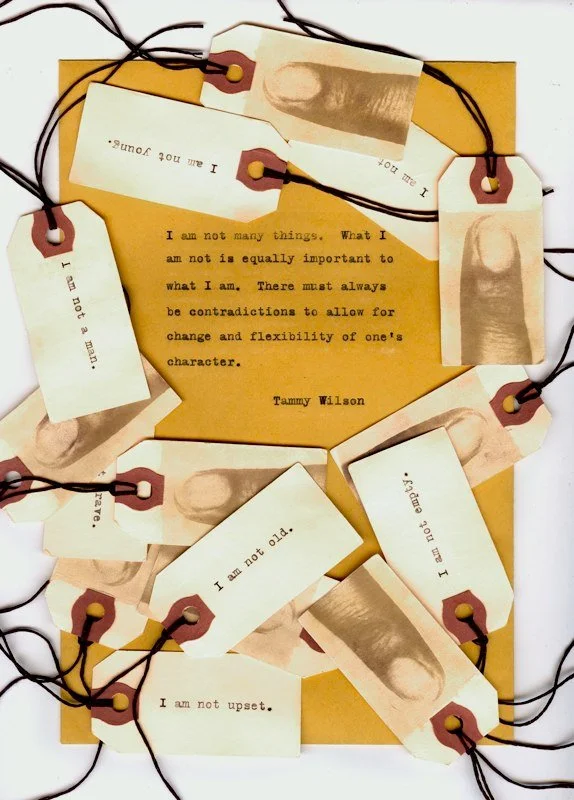 I am not young.
I am not
I am not many things. What I
am not is equally important to
what I am. There must always
be contradictions to allow for
change and flexibility of one's
character.
Tammy Wilson
I am not a man.
I am not empty.
rave.
I am not old.
I am not upset.